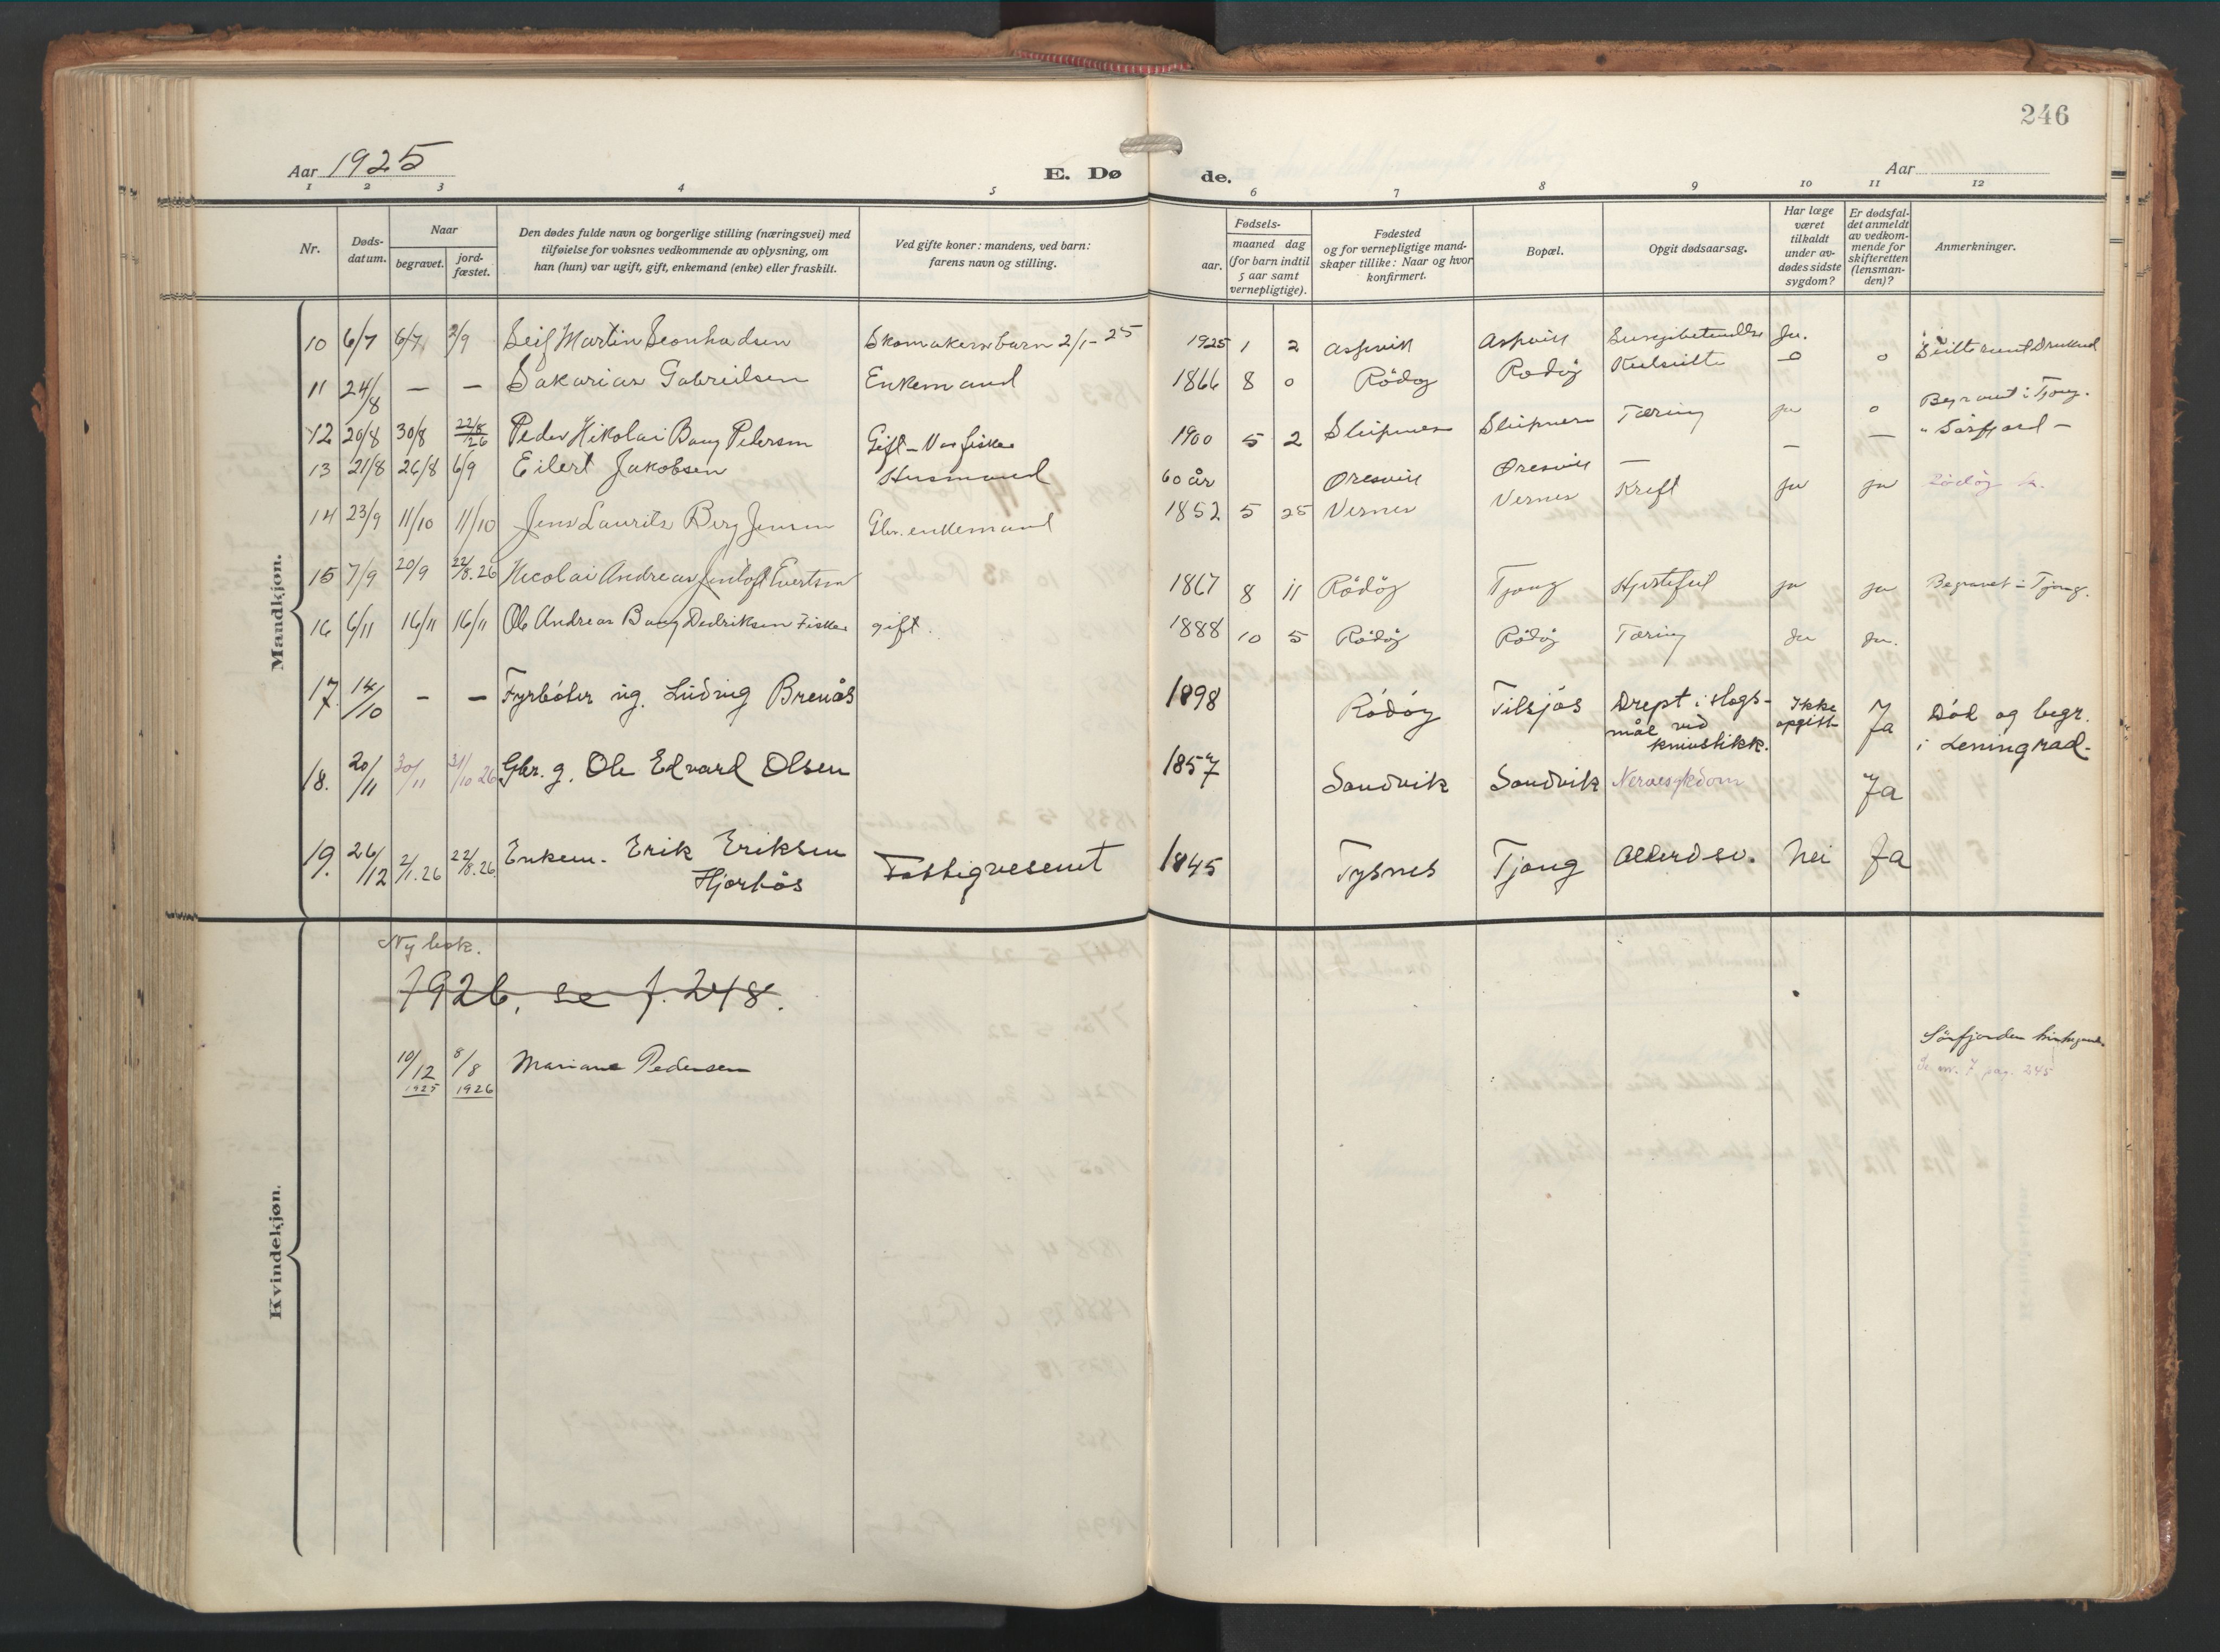 246
Aar 1925
E. Dø
de.
Aar
1 2 3 4 5 6 7 8 9 10 11 12
Nr.
Døds-
datum.
Naar
begravet.
jord-
fæstet.
Den dødes fulde navn og borgerlige stilling (næringsvei) med
tilføielse for voksnes vedkommende av oplysning, om
han (hun) var ugift, gift, enkemand (enke) eller fraskilt.
Ved gifte koner: mandens, ved barn:
farens navn og stilling.
Fødsels-
aar.
maaned dag
(for barn indtil
5 aar samt
vernepligtige).
Fødested
og for vernepligtige mand-
skaper tillike: Naar og hvor
konfirmert.
Bopæl.
Opgit dødsaarsag.
Har læge
været
tilkaldt
under av-
dødes sidste
sygdom?
Er dødsfal-
det anmeldt
av vedkom-
mende for
skifteretten
(lensman-
den)?
Anmerkninger.
Mandkjøn.
10 6/7 6/7 2/9 Leif Martin Leonhadsen Skomakersbarn 2/1-25 1925 1 2 Aspvik Aspvik Lungebetendelse Ja.
11 24/8 — — Sakarias Gabrielsen Enkemand 1866 8 0 Rödöy Rødöy o o
12 20/8 30/8 22/8 26 Peder Nikolai Bang Pedersen Gift - Var fisker 1900 5 2 Sleipnes Sleipnes Tæring ja o Begravet i Tjong.
13 21/8 26/8 6/9 Eilert Jakobsen Husmand 60 år Øresvik Øresvik — — — " Sörfjord —
14 23/9 11/10 11/10 Jens Laurits Berg Jensen Gbr. enkemand 1852 5 25 Vernes Vernes Kreft ja ja Rödöy k.
15 7/9 20/9 22/8.26 Nicolai Andreas Jentoft Evertsen 1867 8 11 Rödöy Tjong Hjertefeil ja ja Begravet i Tjong.
16 6/11 16/11 16/11 Ole Andreas Bang Dedriksen Fisker gift. 1888 10 5 Rödöy Rödöy Tæring Ja Ja.
17. 14/10 – – Fyrböter ug. Ludvig Brenås 1898 Rödöy Tilsjøs Drept i slags-
mål ved
knivstikk. Ikke
opgitt Ja Död og begr.
i Leningrad.
18. 20/11 30/11 31/10 26 Gbr. g. Ole Edvard Olsen 1857 Sandvik Sandvik Nervesykdom Ja
19. 26/12 2/1.26 22/8.26. Enkem. Erik Eriksen
Hjortås Fattigvesenet 1845 Tysnes Tjong Alderdsv. Nei Ja
Kvindekjøn.
Ny bok.
1926, se f. 248.
10/12 1925 8/8 1926 Mariane Pedersen Sörfjorden
Se nr. 7 pag. 245